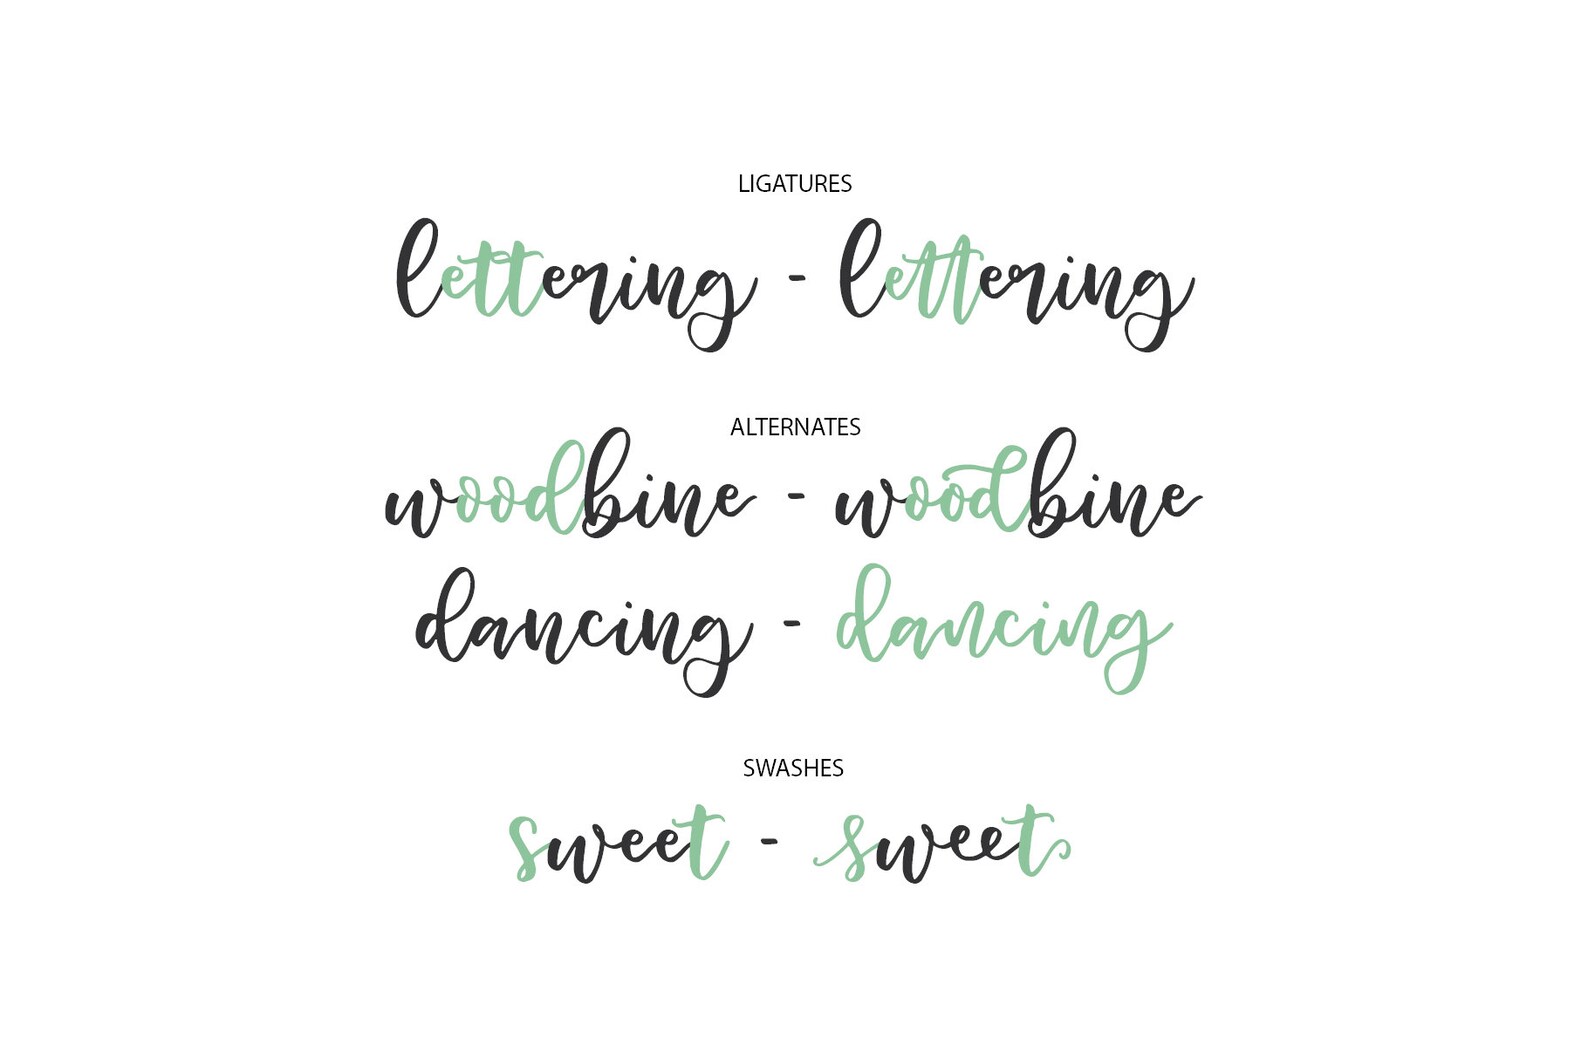 LIGATURES
lettering - lettering
ALTERNATES
woodbine - woodbine
dancing - dancing
SWASHES
sweet - sweet